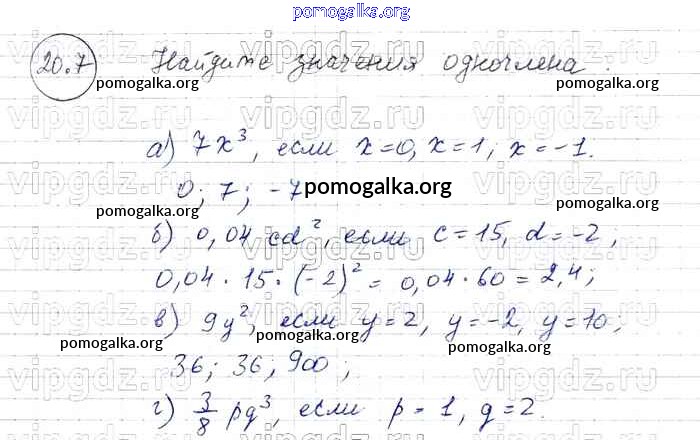 pomogalka.org
20.7 Найдите значения одночлена:
pomogalka.org pomogalka.org
vipgdz.ru vipgdz.ru vipgdz.ru
а) 7x³, если x=0, x=1, x=-1.
0; 7; -7
pomogalka.org
pomogalka.org pomogalka.org
б) 0,04 cd², если c=15, d=-2,
0,04 · 15 · (-2)² = 0,04 · 60 = 2,4;
в) 9y², если y=2, y=-2, y=10;
pomogalka.org pomogalka.org
36; 36; 900;
г) 3/8 pq³, если p=1, q=2.
pomogalka.org pomogalka.org